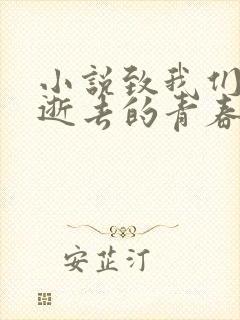 小说致我们
逝去的青春
安芷汀